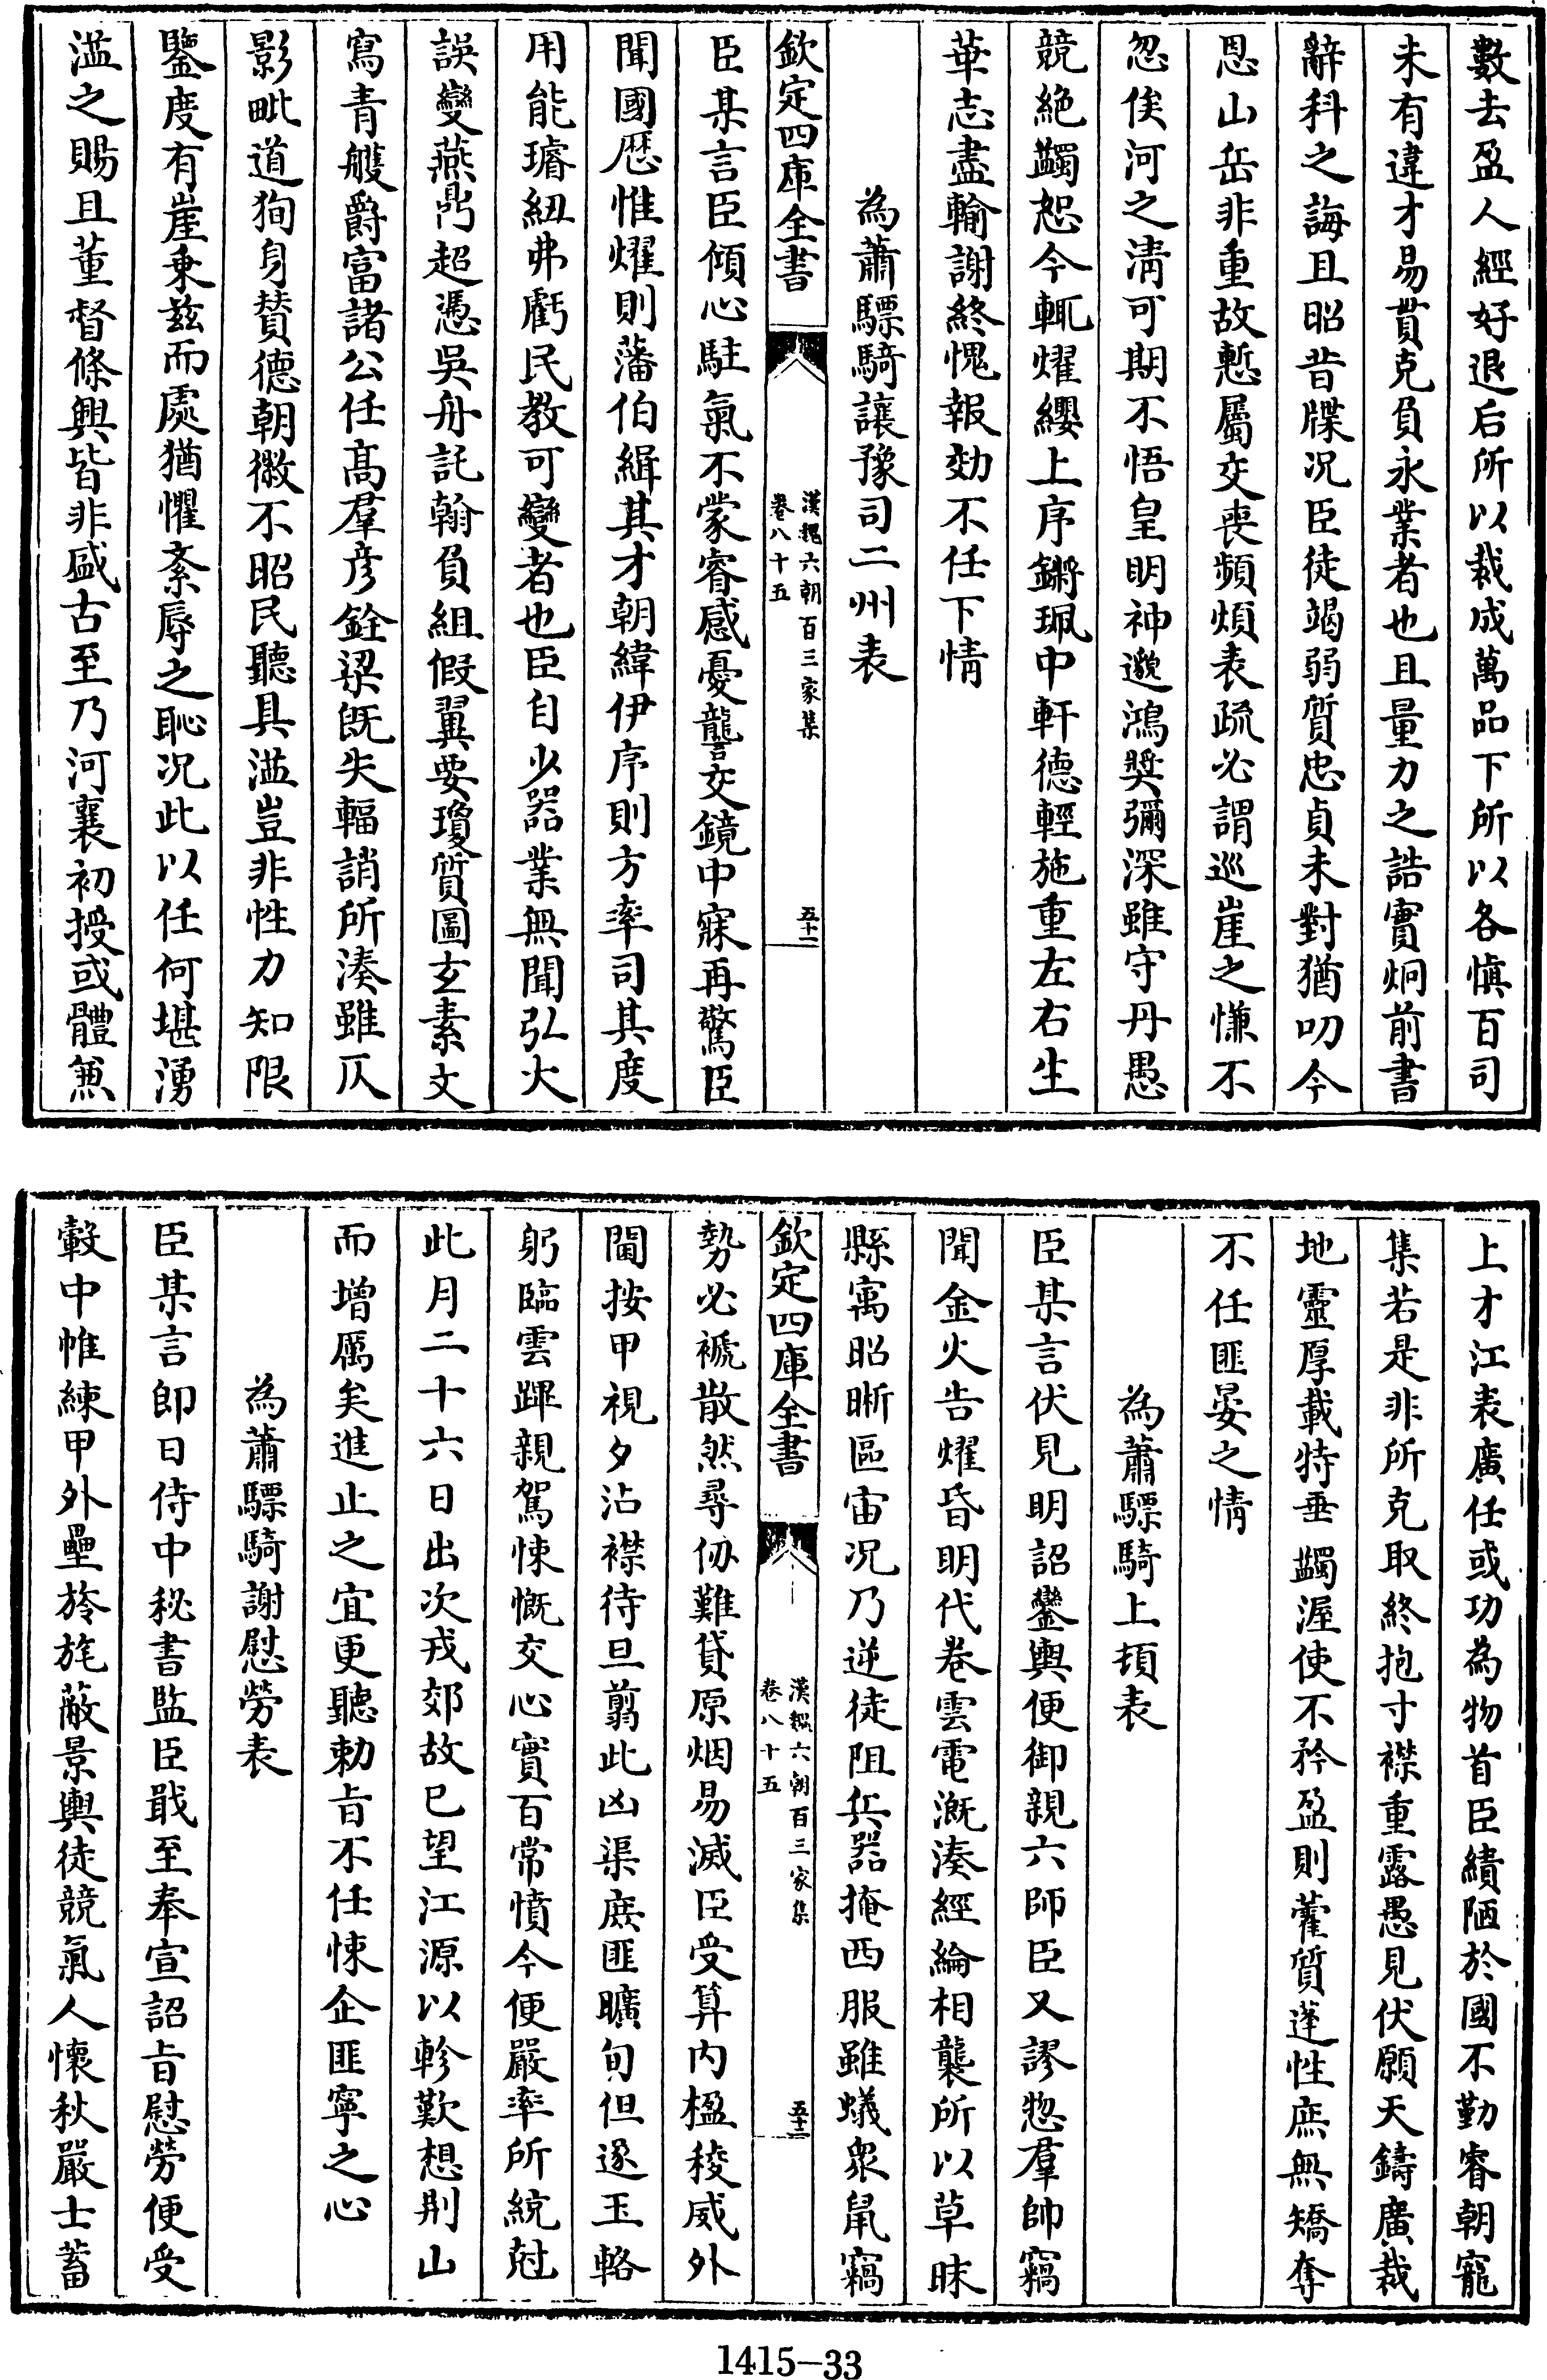 數去盈人經好退后所以裁成萬品下所以各慎百司
未有違才易貫克負永業者也且量力之誥實炯前書
辭科之誨且昭昔牒况臣徒竭弱質忠貞未對猶叨今
恩山岳非重故慙屬交喪頻煩表疏必謂巡崖之慊不
忽俟河之清可期不悟皇明神邈鴻奬彌深雖守丹愚
競絶蠲恕今輒燿纓上序鏘珮中軒德輕施重左右生
華志盡輸謝終愧報効不任下情
為蕭驃騎讓豫司二州表
欽定四庫全書
漢魏六朝百三家集
卷八十五
五十一
臣某言臣傾心駐氣不蒙睿感憂讋交鏡中寐再驚臣
聞國歴惟燿則藩伯緝其才朝緯伊序則方率司其度
用能璿紐弗虧民教可變者也臣自少器業無聞弘火
誤變燕鼎超憑吳舟託翰負組假翼要瓊質圖玄素文
寫青艧爵富諸公任高羣彦銓梁旣失輻誚所湊雖仄
影毗道狥身賛德朝徽不昭民聽具滥豈非性力知限
鑒度有崖秉兹而處猶懼紊辱之恥况此以任何堪湧
滥之賜且董督條興皆非盛古至乃河襄初授或體兼
上才江表廣任或功為物首臣績陋於國不勤睿朝寵
集若是非所克取終抱寸襟重露愚見伏願天鑄廣裁
地靈厚載特垂蠲渥使不矜盈則藿質蓬性庶無矯奪
不任匪晏之情
為蕭驃騎上頓表
臣某言伏見明詔鑾輿便御親六師臣又謬惣羣帥竊
聞金火告燿昏明代卷雲電漑湊經綸相襲所以草昧
縣寓昭晰區宙况乃逆徒阻兵器掩西服雖蟻衆鼠竊
欽定四庫全書
漢魏六朝百三家集
卷八十五
五十二
勢必褫散然尋仞難貸原烟易滅臣受算内楹稜威外
閫按甲視夕沾襟待旦翦此凶渠庶匪曠旬但遂玉輅
躬臨雲蹕親駕悚慨交心實百常憤今便嚴率所統尅
此月二十六日出次戎郊故已望江源以軫歎想荆山
而增厲矣進止之宜更聽勅旨不任悚企匪寧之心
為蕭驃騎謝慰勞表
臣某言即日侍中秘書監臣戢至奉宣詔旨慰勞便受
轂中帷練甲外壘旍旄蔽景輿徒競氣人懷秋嚴士蓄
1415-33